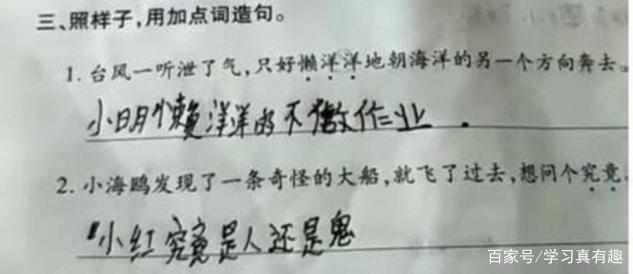 三、照样子,用加点词造句。
1. 台风一听泄了气,只好懒洋洋地朝海洋的另一个方向奔去。
小明懒洋洋的不做作业.
2. 小海鸥发现了一条奇怪的大船,就飞了过去,想问个究竟。
小红究竟是人还是鬼
百家号/学习真有趣